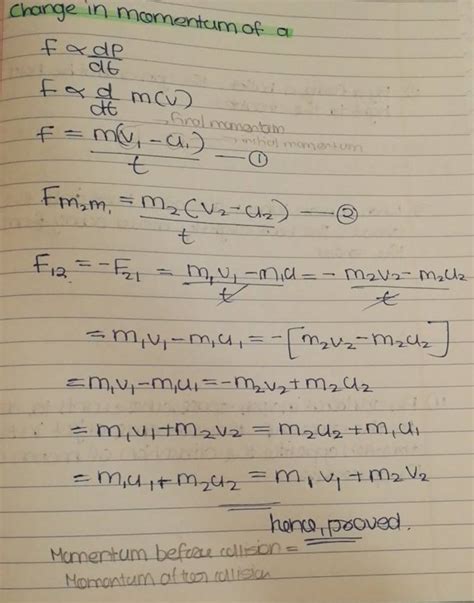 change in momentum of a
F ∝ dP/dt
F ∝ d/dt m(v)
→ final momentum
F = m(v₁ - u₁)/t — ①
→ initial momentum
Fm₂m₁ = m₂(v₂-u₂)/t — ②
F₁₂ = -F₂₁ = m₁v₁-m₁u/t = - m₂v₂-m₂u₂/t
= m₁v₁-m₁u₁ = -[m₂v₂-m₂u₂]
= m₁v₁-m₁u₁ = -m₂v₂+m₂u₂
= m₁v₁+m₂v₂ = m₂u₂+m₁u₁
= m₁u₁+m₂u₂ = m₁v₁+m₂v₂
hence, proved.
Momentum before collision =
Momentum after collision